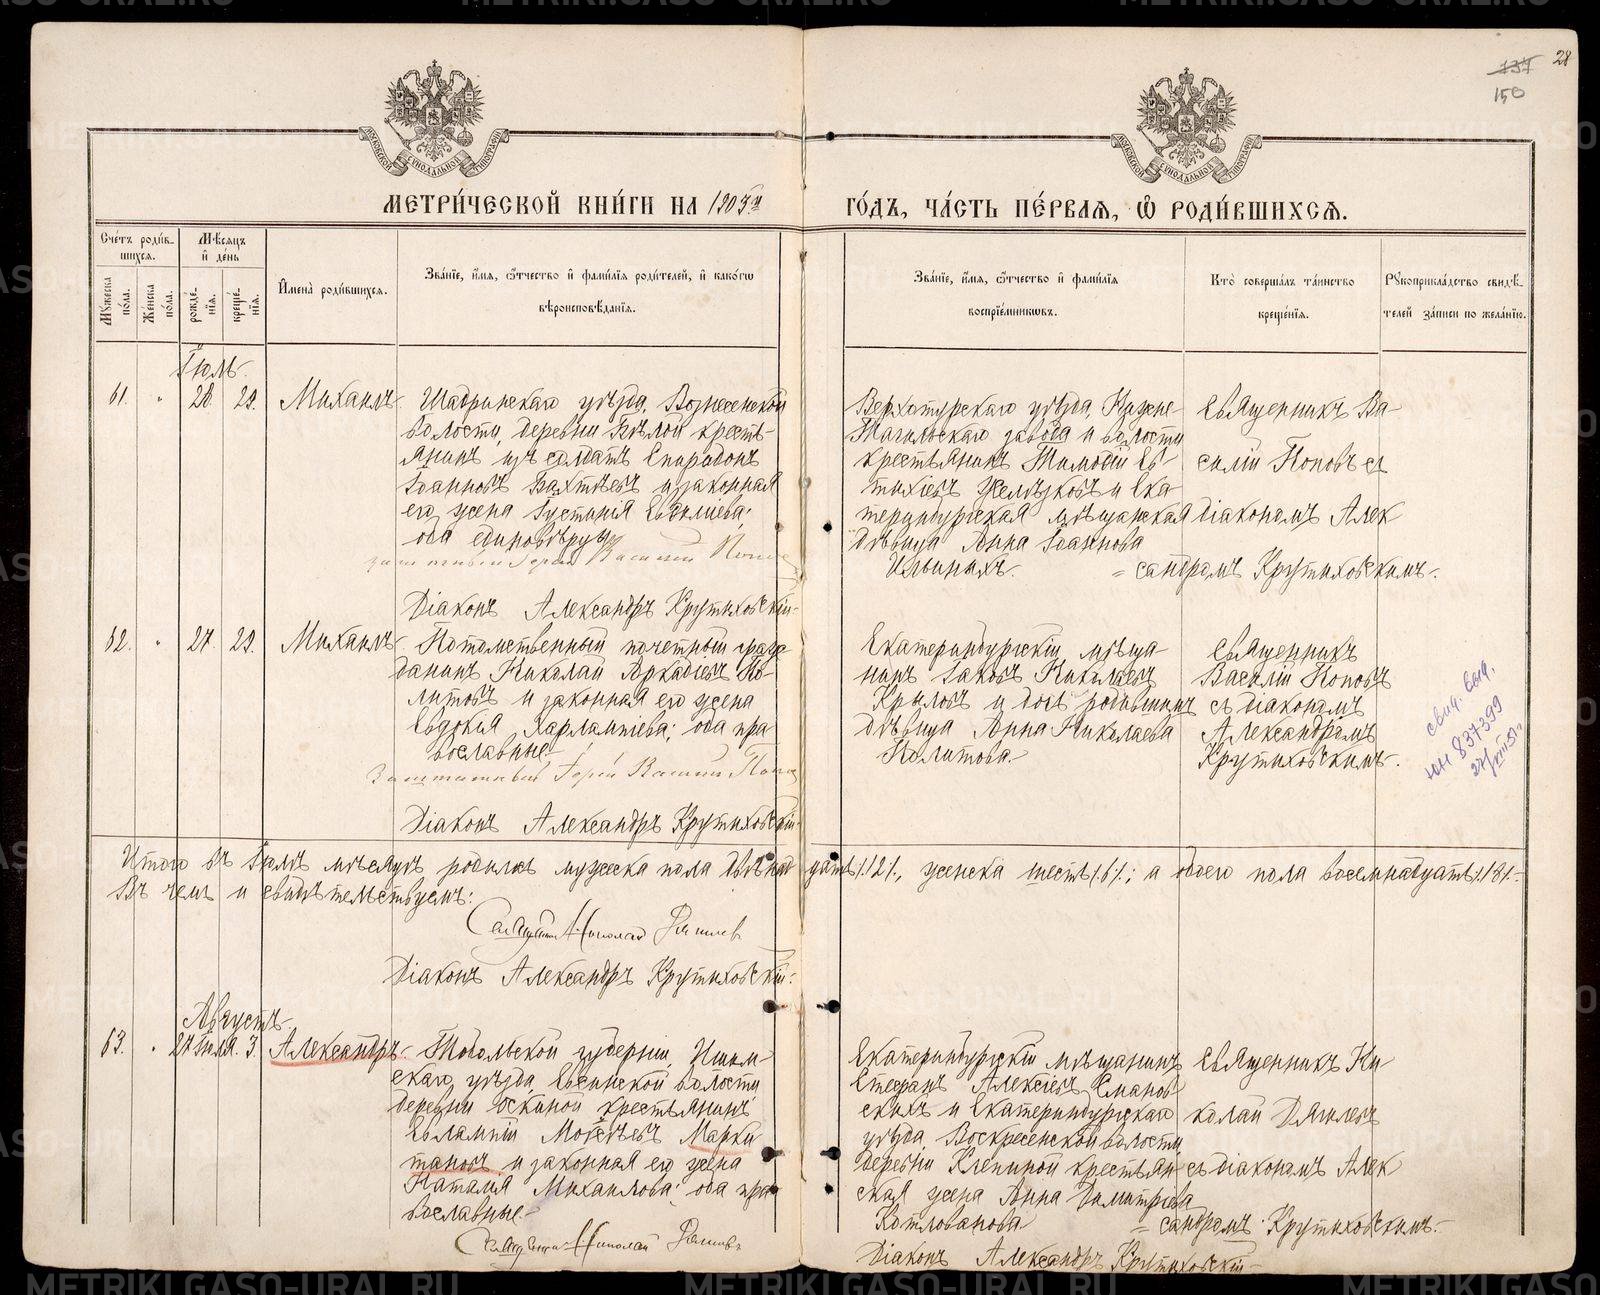 28
137
150
МОСКОВСКОЙ СИНОДАЛЬНОЙ ТИПОГРАФІИ
МОСКОВСКОЙ СИНОДАЛЬНОЙ ТИПОГРАФІИ
МЕТРИ́ЧЕСКОЙ КНИ́ГИ НА 1905й
ГО́ДЪ, ЧА́СТЬ ПЕ́РВАЯ, Ѡ҆ РОДИ́ВШИХСЯ.
Сче́тъ роди́вшихся.
Му́жеска по́ла.
Же́нска по́ла.
Мѣ́сяцъ и҆ де́нь
рожде́нїя.
креще́нїя.
И҆мена̀ роди́вшихся.
Зва́нїе, и҆́мя, ѻ҆́тчество и҆ фами́лїя роди́телей, и҆ како́гѡ
вѣроисповѣ́данїя.
Зва́нїе, и҆́мя, ѻ҆́тчество и҆ фами́лїя
воспрїе́мникѡвъ.
Кто̀ соверша́лъ та́инство
креще́нїя.
Рꙋкоприкла́дство свидѣ́-
телей за́писи по жела́нїю.
Іюль.
61. " 28 29. Михаилъ
Шадринскаго уѣзда, Вознесенской
волости, деревни Бѣлой кресть-
янинъ изъ солдатъ Спиридонъ
Іоанновъ Бахтѣевъ и законная
его жена Іустинія Еввлиева;
оба единовѣрцы
заштатный Іерей Василій Попов
Діаконъ Александръ Крутиховскій-
Верхотурскаго уѣзда, Нижне-
Тагильскаго завода и волости
крестьянинъ Тимоѳей Ев-
тихіевъ Желѣзковъ и Ека-
теринбургская мѣщанская
дѣвица Анна Іоаннова
Ильиныхъ.
Священникъ Ва-
силій Поповъ съ
діакономъ Алек
=сандромъ Крутиховскимъ.
62. " 27. 29. Михаилъ
Потомственный почетный граж
данинъ Николай Аркадіевъ По-
литовъ и законная его жена
Евдокія Харлампіева; оба пра
вославные
Заштатный Іерей Василій Попов
Діаконъ Александръ Крутиховскій-
Екатеринбургскій мѣща-
нинъ Іаковъ Николаевъ
Крыловъ и дочь родившихъ
дѣвица Анна Николаева
Политова.
Священникъ
Василій Поповъ
съ діакономъ
Александромъ
Крутиховскимъ.
свид. выд.
НН 837399
27/VII 51 г
Итого въ Іюлѣ мѣсяцѣ родилось мужеска пола двѣнадцать /.12/., женска шесть /.6/.; а обоего пола восемнадцать /.18/.
Въ чемъ и свидѣтельствуемъ:
Священникъ Николай Дягилев
Діаконъ Александръ Крутиховскій:
Августъ.
63. " 27 Іюля. 3. Александръ
Тобольской губерніи, Ишим-
скаго уѣзда, волости
деревни Оскиной крестьянинъ
Евлампій Моисеевъ Марки
тановъ и законная его жена
Наталія Михаилова; оба пра
вославные.
Священникъ Николай Дягилевъ
Екатеринбургскій мѣщанинъ
Стефанъ Алексіевъ Симанов
скихъ и Екатеринбургскаго
уѣзда, Воскресенской волости
деревни Клепиной крестьян
ская жена Анна Димитріева
Котлованова
Священникъ Ни
колай Дягилевъ
съ діакономъ Алек
=сандромъ Крутиховскимъ.
Діаконъ Александръ Крутиховскій-
METRIKI.GASO-URAL.RU